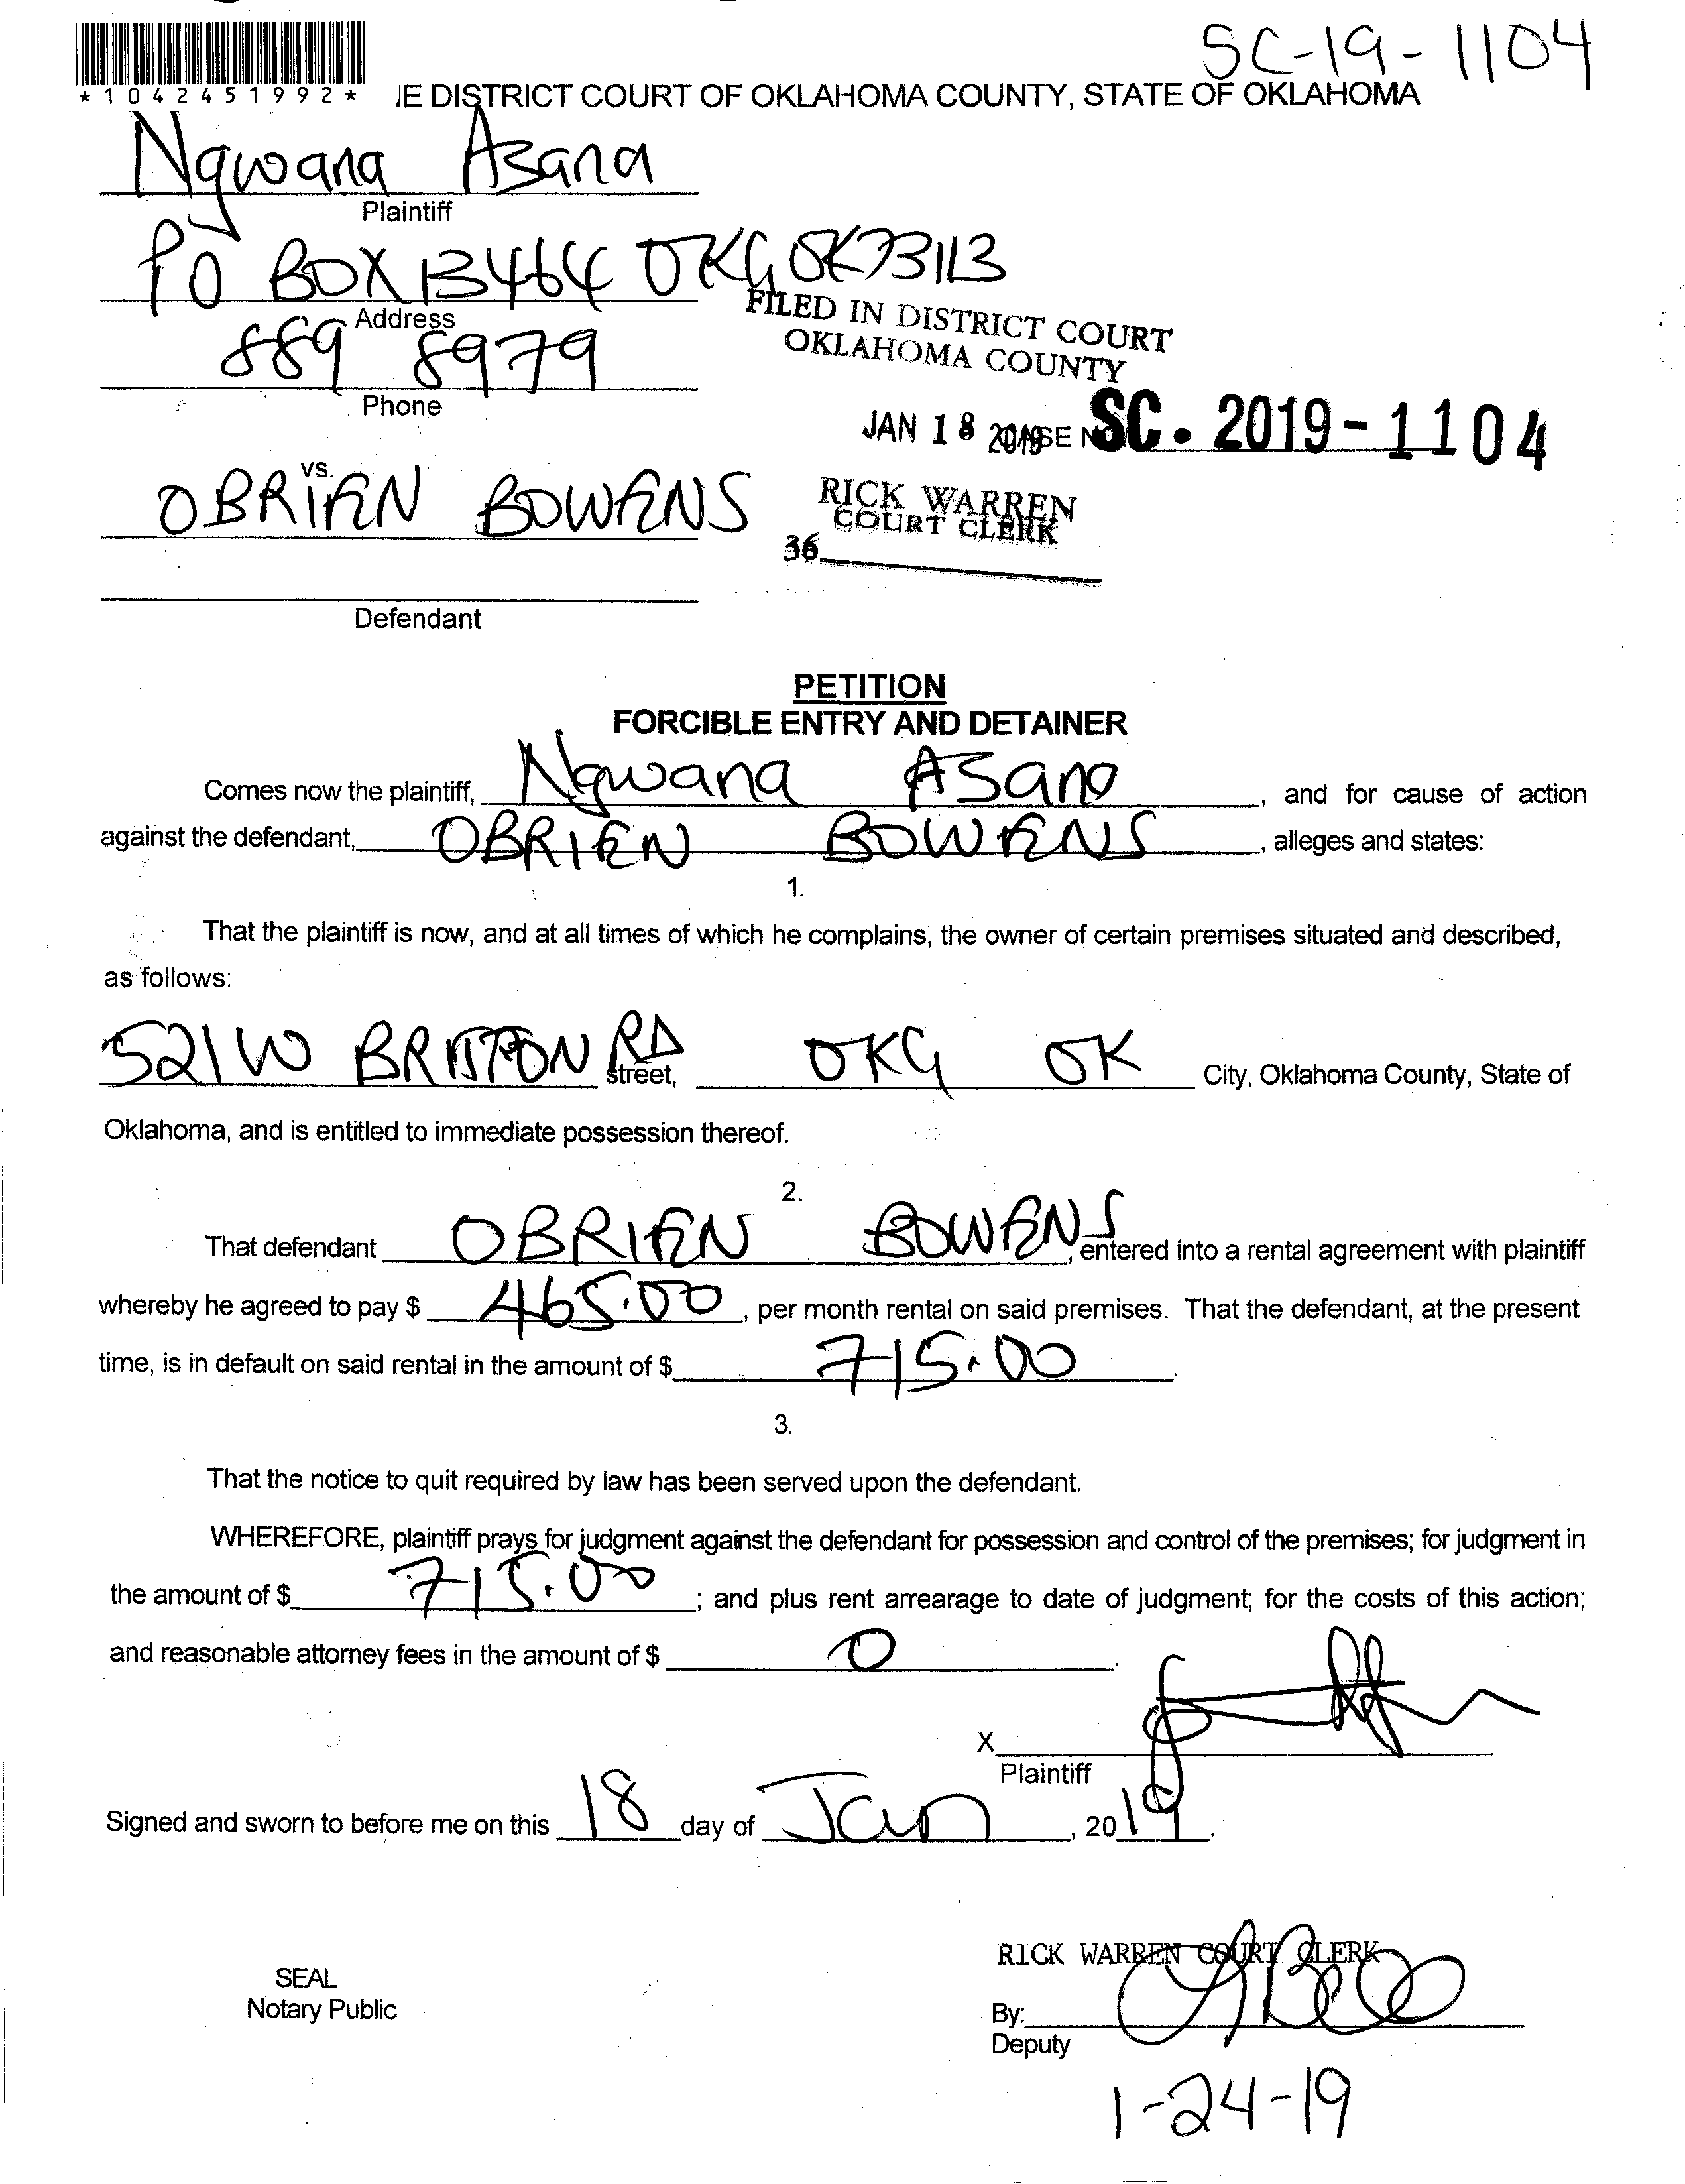 SC-19-1104
*1042451992* IE DISTRICT COURT OF OKLAHOMA COUNTY, STATE OF OKLAHOMA
Ngwana Asana
Plaintiff
PO BOX 13464 OKC OK 73113
Address
FILED IN DISTRICT COURT
OKLAHOMA COUNTY
889 8979
Phone
JAN 18 2019 SC. 2019-1104
vs.
OBRIEN BOWENS
RICK WARREN
COURT CLERK
36
Defendant
PETITION
FORCIBLE ENTRY AND DETAINER
Comes now the plaintiff, Ngwana Asana, and for cause of action
against the defendant, OBRIEN BOWENS, alleges and states:
1.
That the plaintiff is now, and at all times of which he complains, the owner of certain premises situated and described,
as follows:
521 W BRITTON RD street, OKC OK City, Oklahoma County, State of
Oklahoma, and is entitled to immediate possession thereof.
2.
That defendant OBRIEN BOWENS, entered into a rental agreement with plaintiff
whereby he agreed to pay $ 465.00, per month rental on said premises. That the defendant, at the present
time, is in default on said rental in the amount of $ 715.00.
3.
That the notice to quit required by law has been served upon the defendant.
WHEREFORE, plaintiff prays for judgment against the defendant for possession and control of the premises; for judgment in
the amount of $ 715.00; and plus rent arrearage to date of judgment; for the costs of this action;
and reasonable attorney fees in the amount of $ 0.
X
Plaintiff
Signed and sworn to before me on this 18 day of Jan, 2019.
RICK WARREN COURT CLERK
SEAL
Notary Public
By:
Deputy
1-24-19